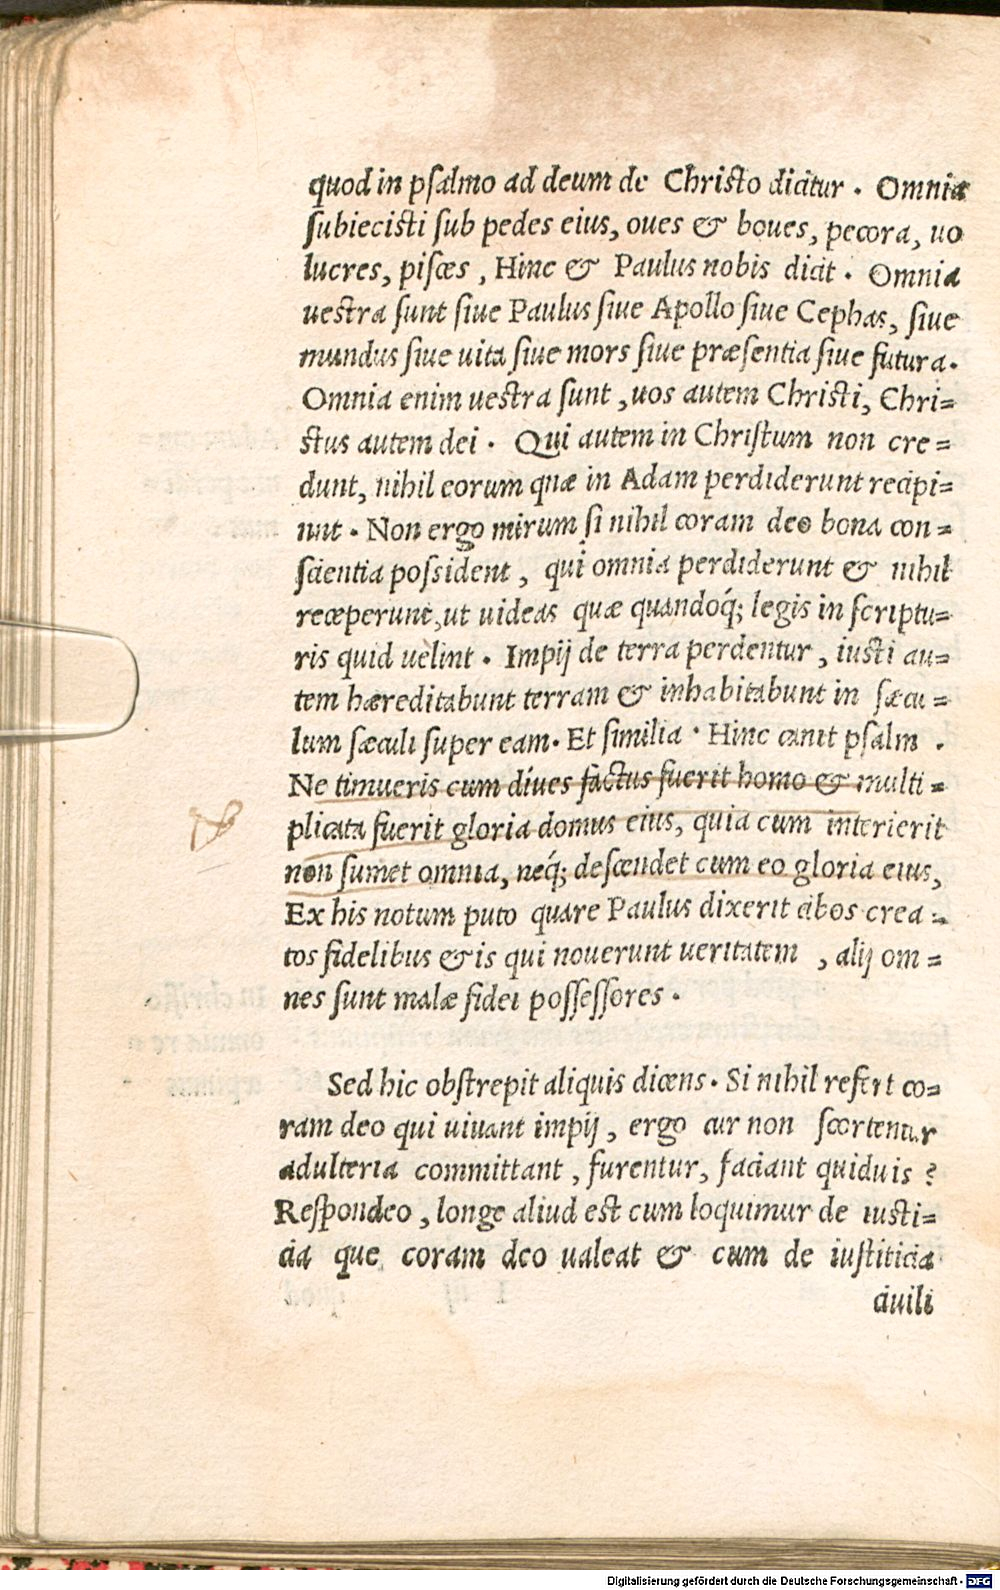 quod in psalmo ad deum de Christo dicitur. Omnia
subiecisti sub pedes eius, oues & boues, pecora, uo
lucres, pisces, Hinc & Paulus nobis dicit. Omnia
uestra sunt siue Paulus siue Apollo siue Cephas, siue
mundus siue uita siue mors siue præsentia siue futura.
Omnia enim uestra sunt, uos autem Christi, Chri=
stus autem dei. Qui autem in Christum non cre=
dunt, nihil eorum quæ in Adam perdiderunt recipi=
unt. Non ergo mirum si nihil coram deo bona con=
scientia possident, qui omnia perdiderunt & nihil
receperunt, ut uideas quæ quandoq́; legis in scriptu=
ris quid uelint. Impij de terra perdentur, iusti au=
tem hæreditabunt terram & inhabitabunt in sæcu=
lum sæculi super eam. Et similia. Hinc canit psalm.
Ne timueris cum diues factus fuerit homo & multi=
plicata fuerit gloria domus eius, quia cum interierit
non sumet omnia, neq́; descendet cum eo gloria eius,
Ex his notum puto quare Paulus dixerit cibos crea=
tos fidelibus & is qui nouerunt ueritatem, alij om=
nes sunt malæ fidei possessores.
Sed hic obstrepit aliquis dicens. Si nihil refert co=
ram deo qui uiuant impij, ergo cur non scortentur
adulteria committant, furentur, faciant quiduis?
Respondeo, longe aliud est cum loquimur de iusti=
cia que coram deo ualeat & cum de iustiticia
ciuili
Digitalisierung gefördert durch die Deutsche Forschungsgemeinschaft - DFG